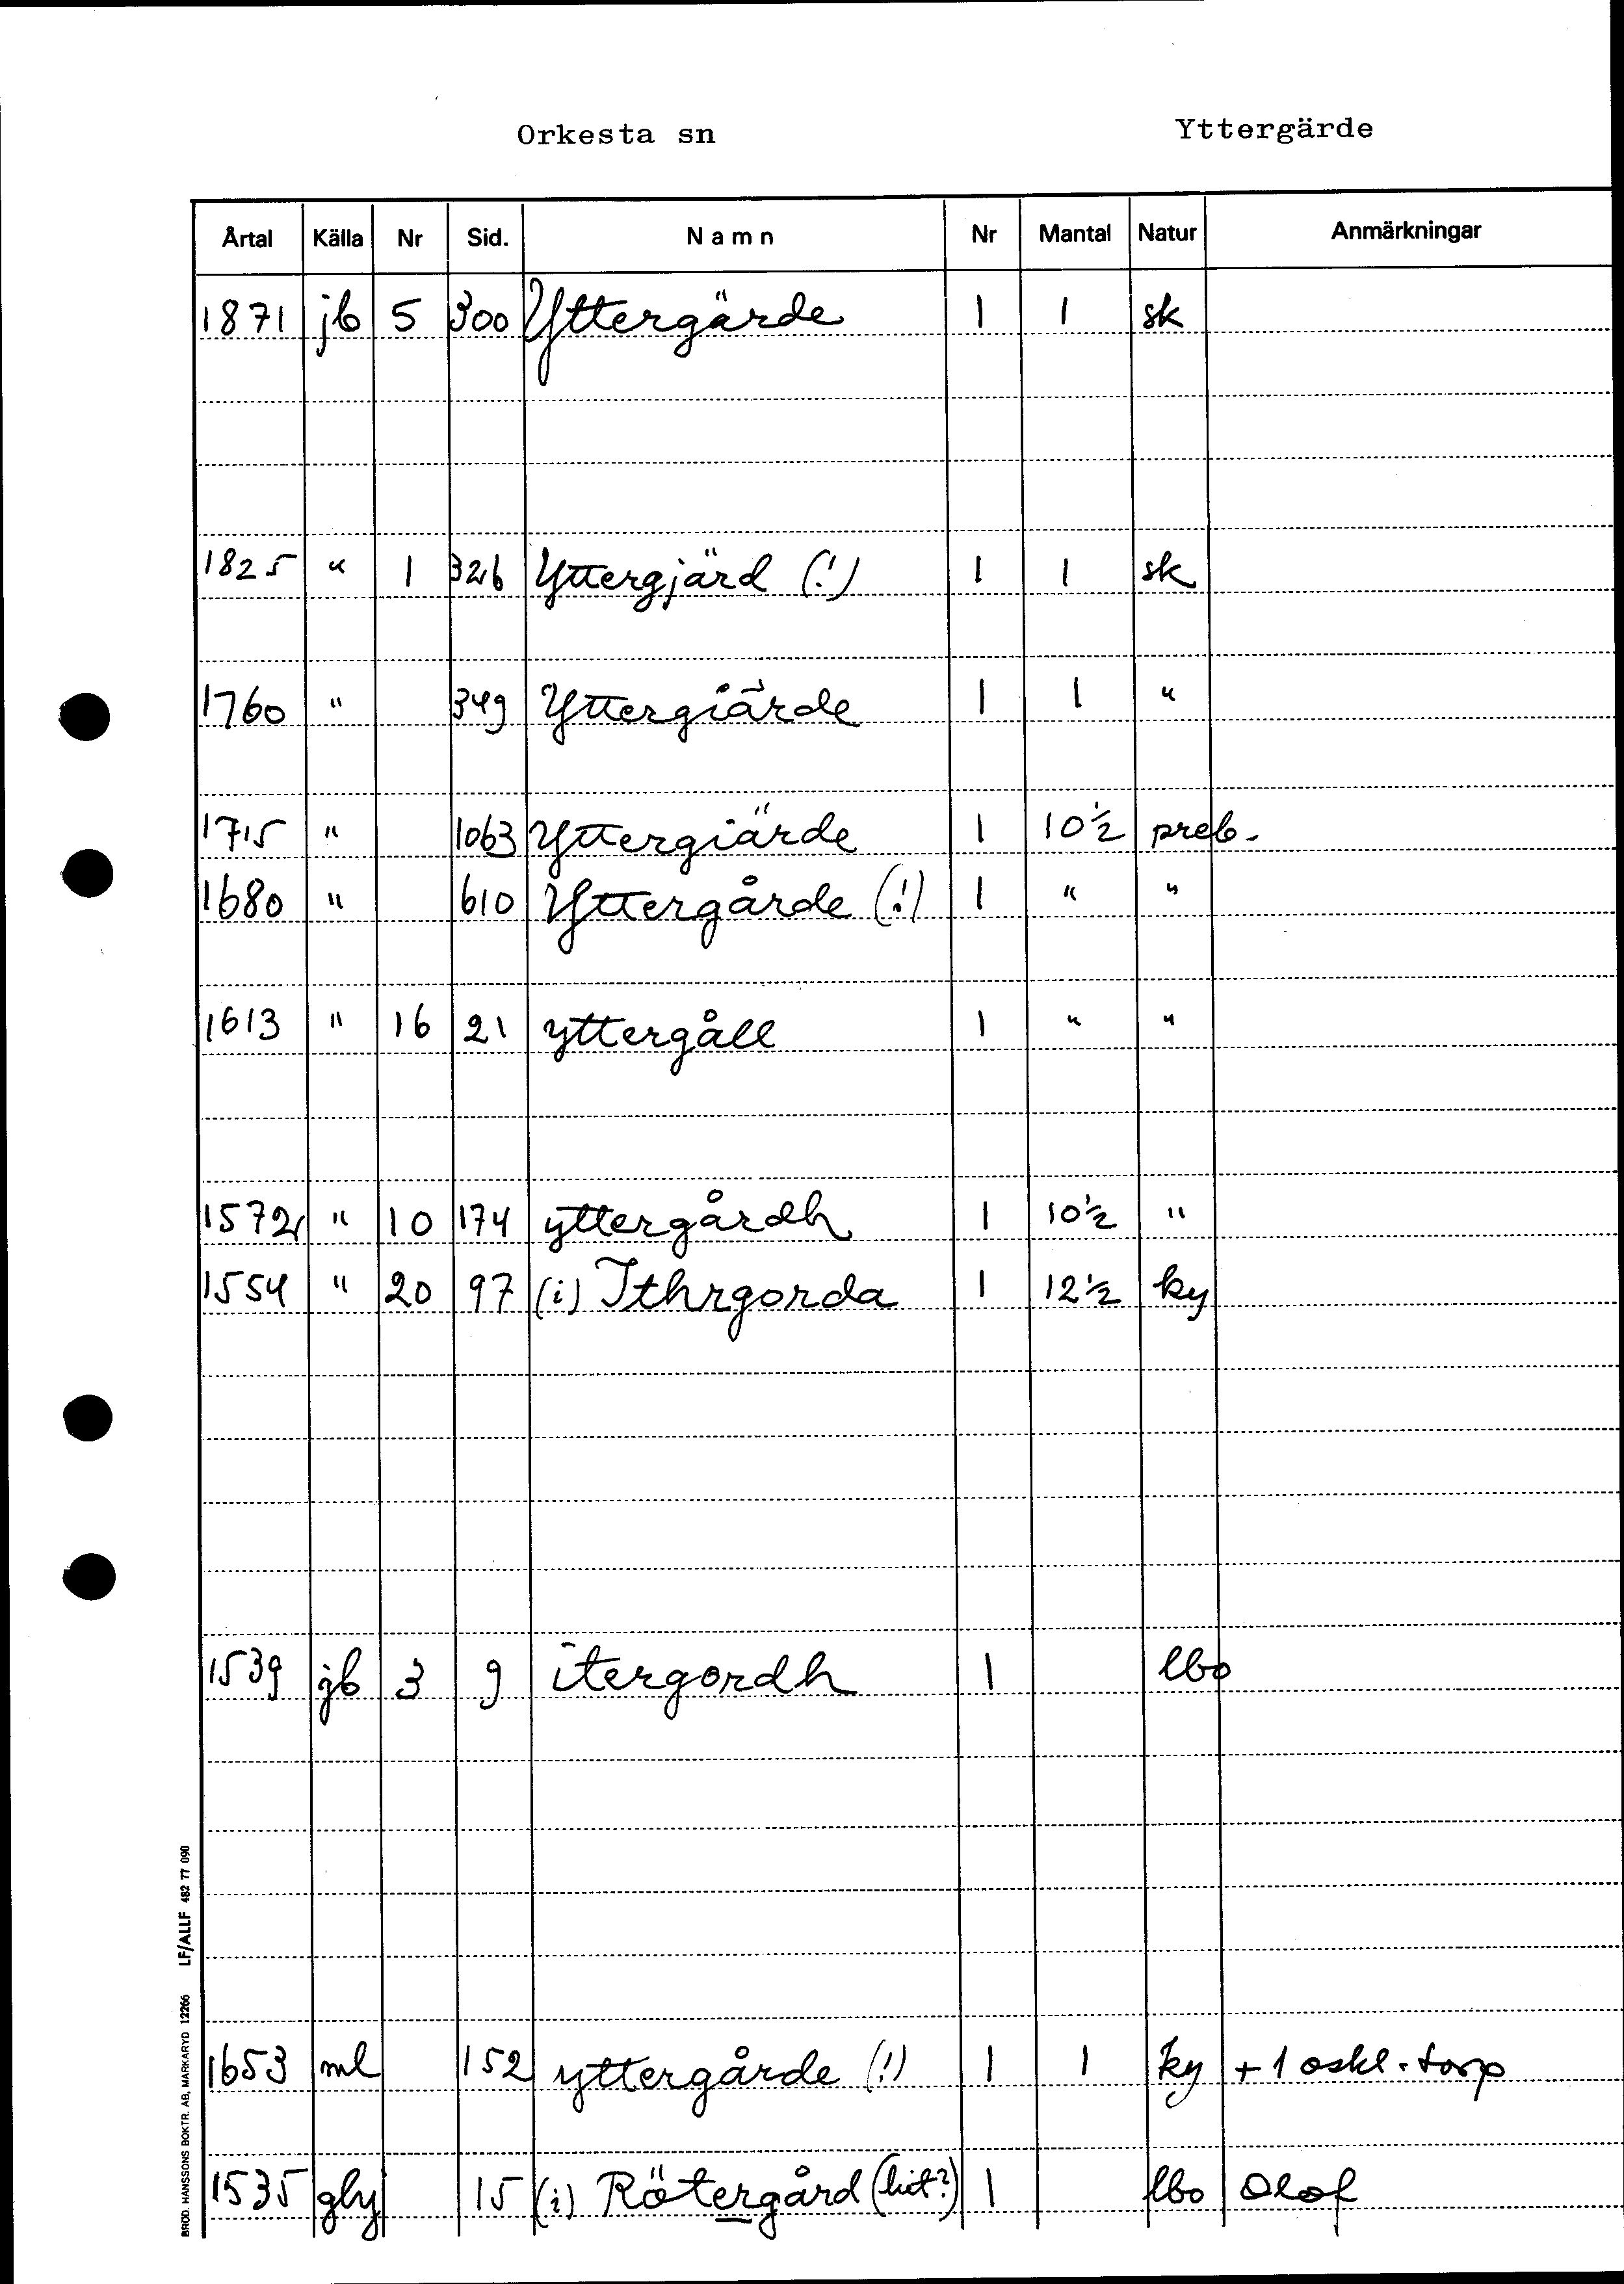 Orkesta sn Yttergärde
Årtal Källa Nr Sid. Namn Nr Mantal Natur Anmärkningar
1871 jb 5 300 Yttergärde 1 1 sk
1825 " 1 326 Yttergjärd (!) 1 1 sk
1760 " 349 Yttergiärde 1 1 "
1715 " 1063 Yttergiärde 1 10½ preb.
1680 " 610 Yttergårde (!) 1 " "
1613 " 16 21 yttergåll 1 " "
1572 " 10 174 yttergårdh 1 10½ "
1554 " 20 97 (i) Ithrgorda 1 12½ ky
1539 jb 3 9 itergordh 1 lbo
1653 ml 152 yttergårde (!) 1 1 ky + 1 oskl. torp
1535 ghy 15 (i) Rötergård (hit?) 1 lbo Olof
BROD. HANSSONS BOKTR. AB, MARKARYD 12266 LF/ALLF 482 77 090